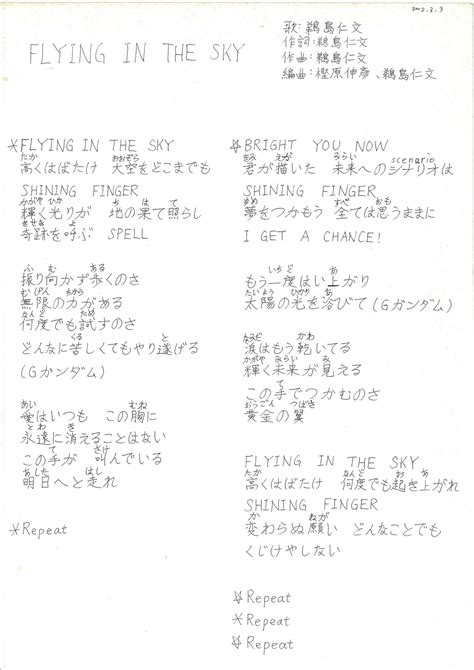 2002.3.9
FLYING IN THE SKY
歌:鵜島仁文
作詞:鵜島仁文
作曲:鵜島仁文
編曲:樫原伸彦、鵜島仁文
*FLYING IN THE SKY
たか おおぞら
高くはばたけ 大空をどこまでも
SHINING FINGER
かがや ひか ち は て
輝く光りが 地の果て照らし
きせき よ
奇跡を呼ぶ SPELL
ふ む ある
振り向かず歩くのさ
むげん ちから
無限の力がある
なんど ため
何度でも試すのさ
くる と
どんなに苦しくてもやり遂げる
(Gガンダム)
あい むね
愛はいつも この胸に
とわ き
永遠に消えることはない
て さけ
この手が 叫んでいる
あした はし
明日へと走れ
*Repeat
☆BRIGHT YOU NOW
きみ えが みらい scenario
君が描いた 未来へのシナリオは
SHINING FINGER
ゆめ すべ おも
夢をつかもう 全ては思うままに
I GET A CHANCE!
いちど あ
もう一度はい上がり
たいよう ひかり あ
太陽の光を浴びて(Gガンダム)
なみだ かわ
涙はもう乾いてる
かがや みらい み
輝く未来が見える
て
この手でつかむのさ
おうごん つばさ
黄金の翼
FLYING IN THE SKY
たか なんど お あ
高くはばたけ 何度でも起き上がれ
SHINING FINGER
か ねが
変わらぬ願い どんなことでも
くじけやしない
☆Repeat
*Repeat
☆Repeat